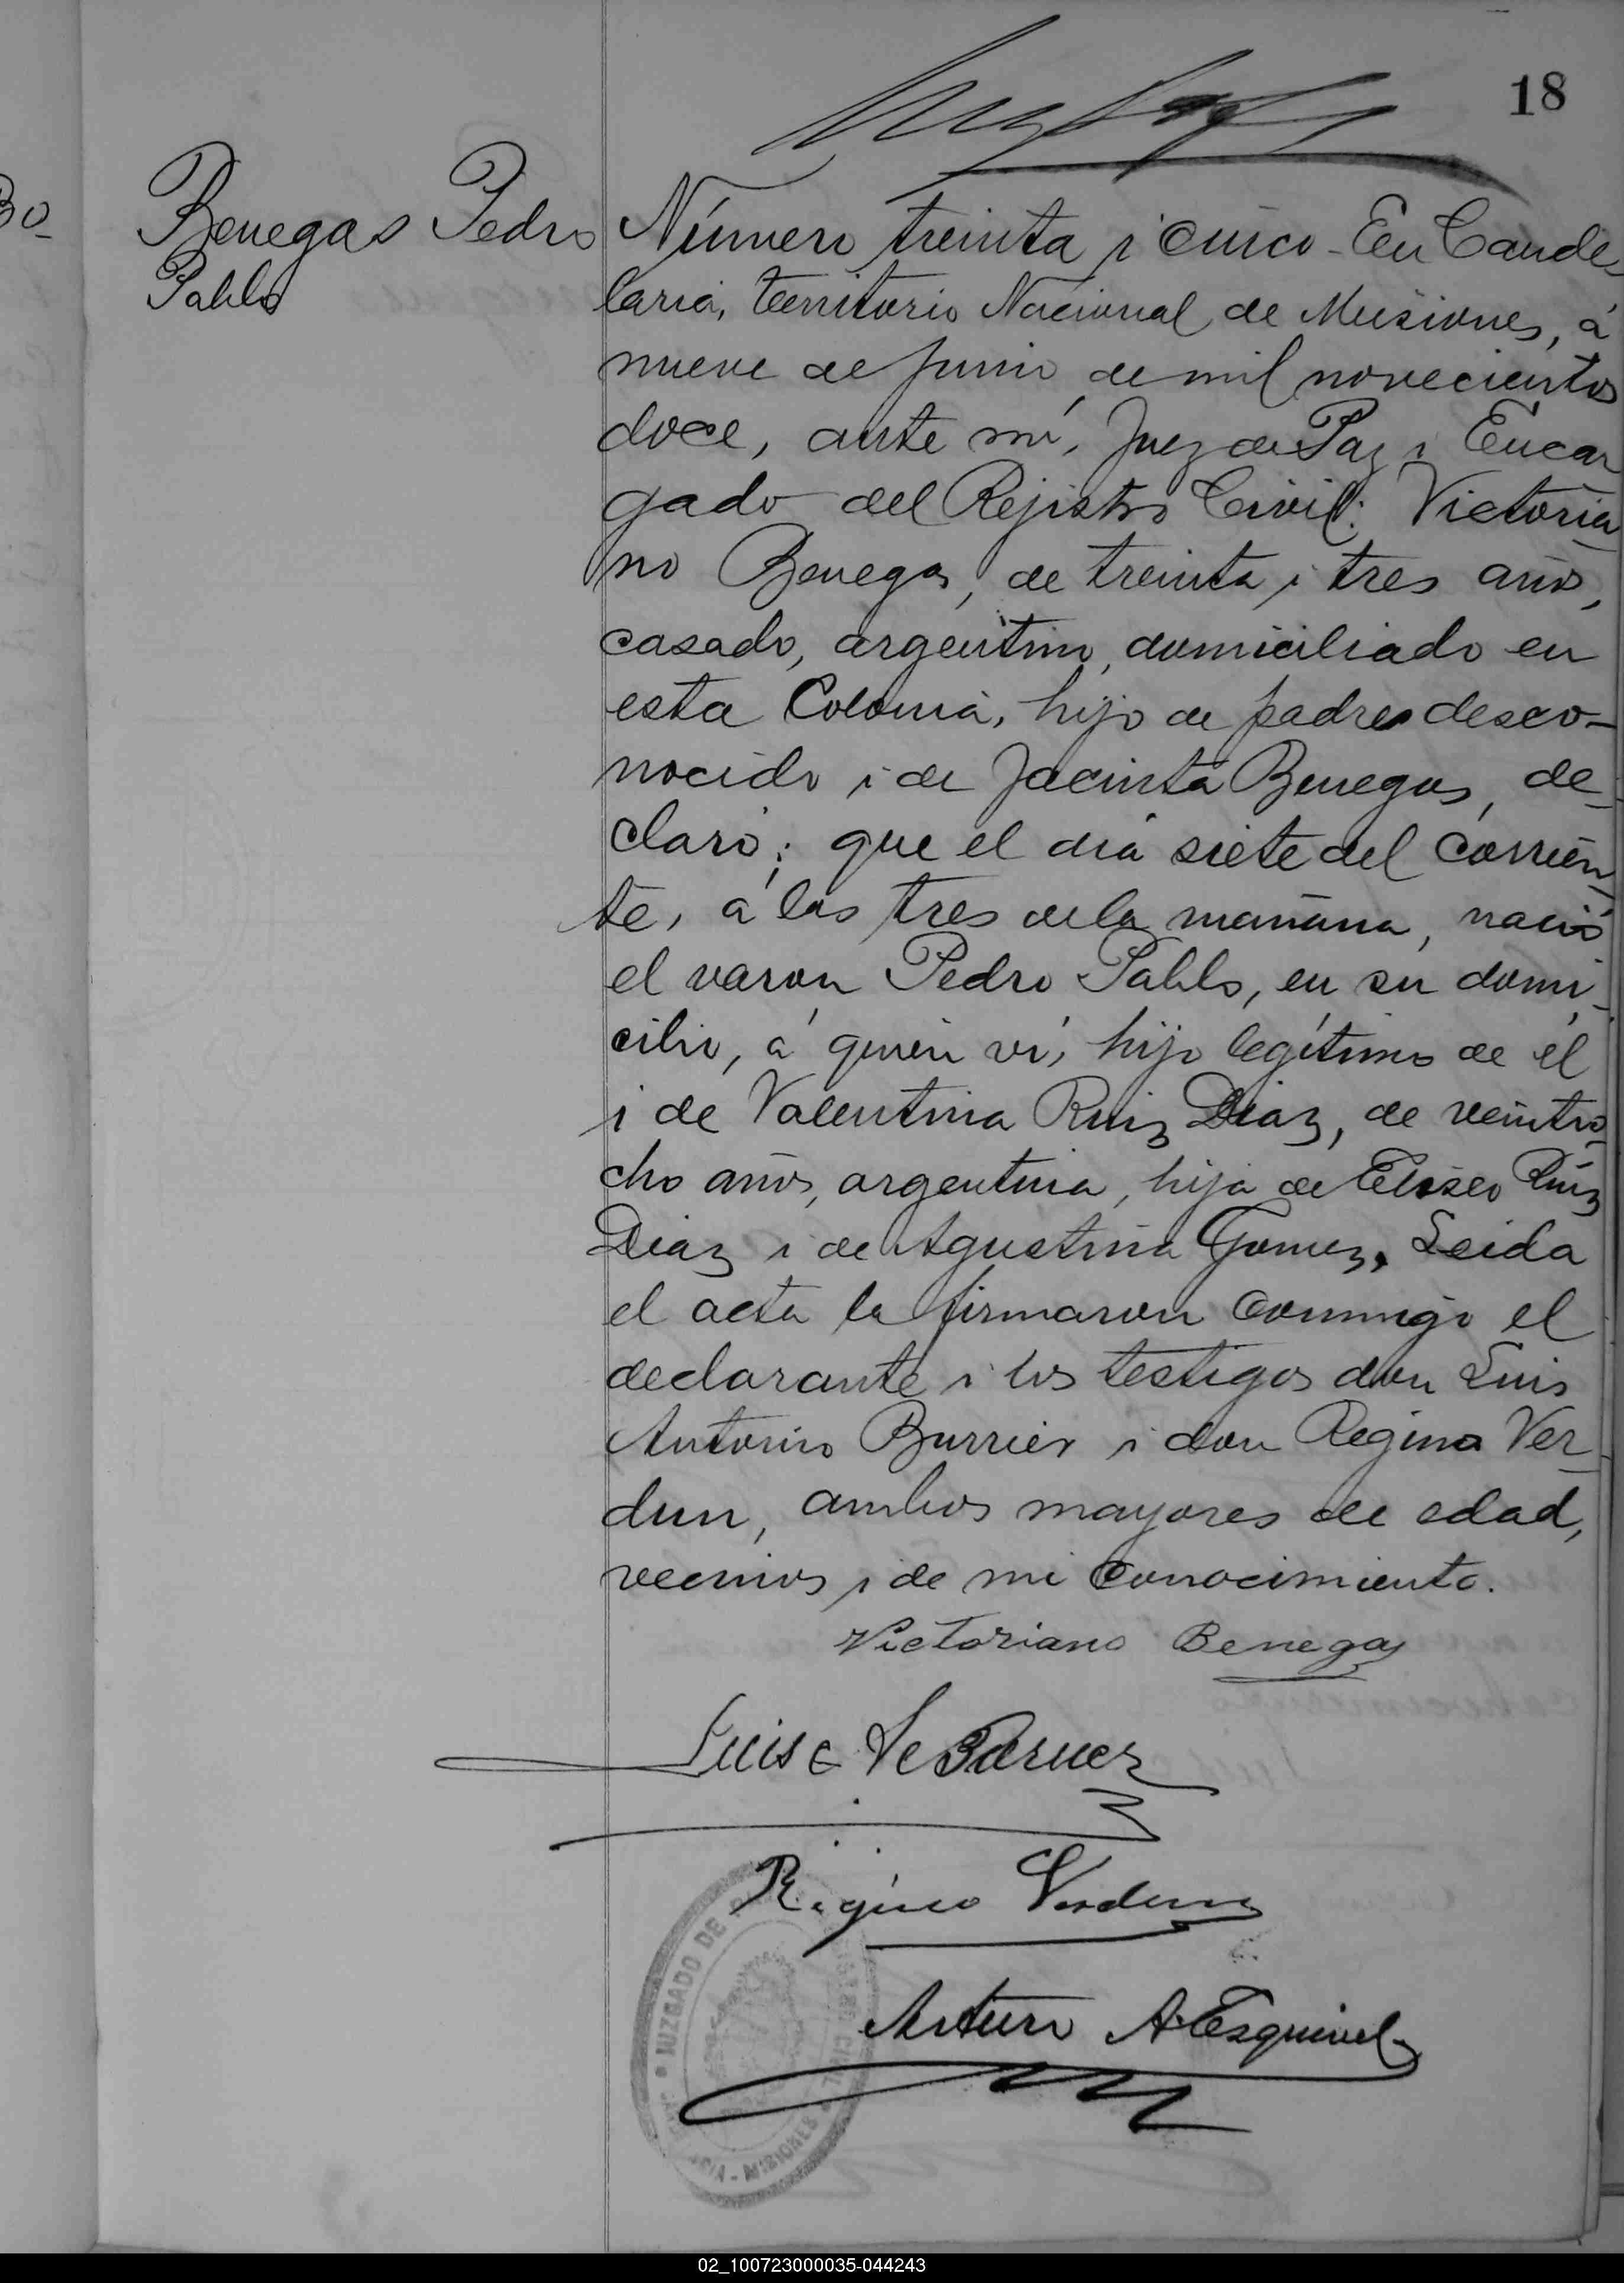 18
Bo_
Benegas Pedro
Pablo
Número treinta i cinco - En Cande_
laria, territorio Nacional de Misiones, á
nueve de Junio de mil novecientos
doce, ante mí, Juez de Paz i Encar
gado del Rejistro Civil: Victoria_
no Benegas, de treinta i tres años,
casado, argentino, domiciliado en
esta Colonia, hijo de padres desco-
nocido i de Jacinta Benegas, de_
claró; que el dia siete del corrien_
te, á las tres de la mañana, nació
el varon Pedro Pablo, en su domi_
cilio, á quien ví, hijo legítimo de él
i de Valentina Ruiz Diaz, de veintio_
cho años, argentina, hija de Eliseo Ruiz
Diaz i de Agustina Gomez. Leida
el acta la firmaron conmigo el
declarante i los testigos don Luis
Antonio Burrier i don Regino Ver_
dun, ambos mayores de edad,
vecinos i de mi conocimiento.
Victoriano Benegas
Regino Verdun
Arturo A. Esquivel
JUZGADO DE PAZ
MISIONES
02_100723000035-044243